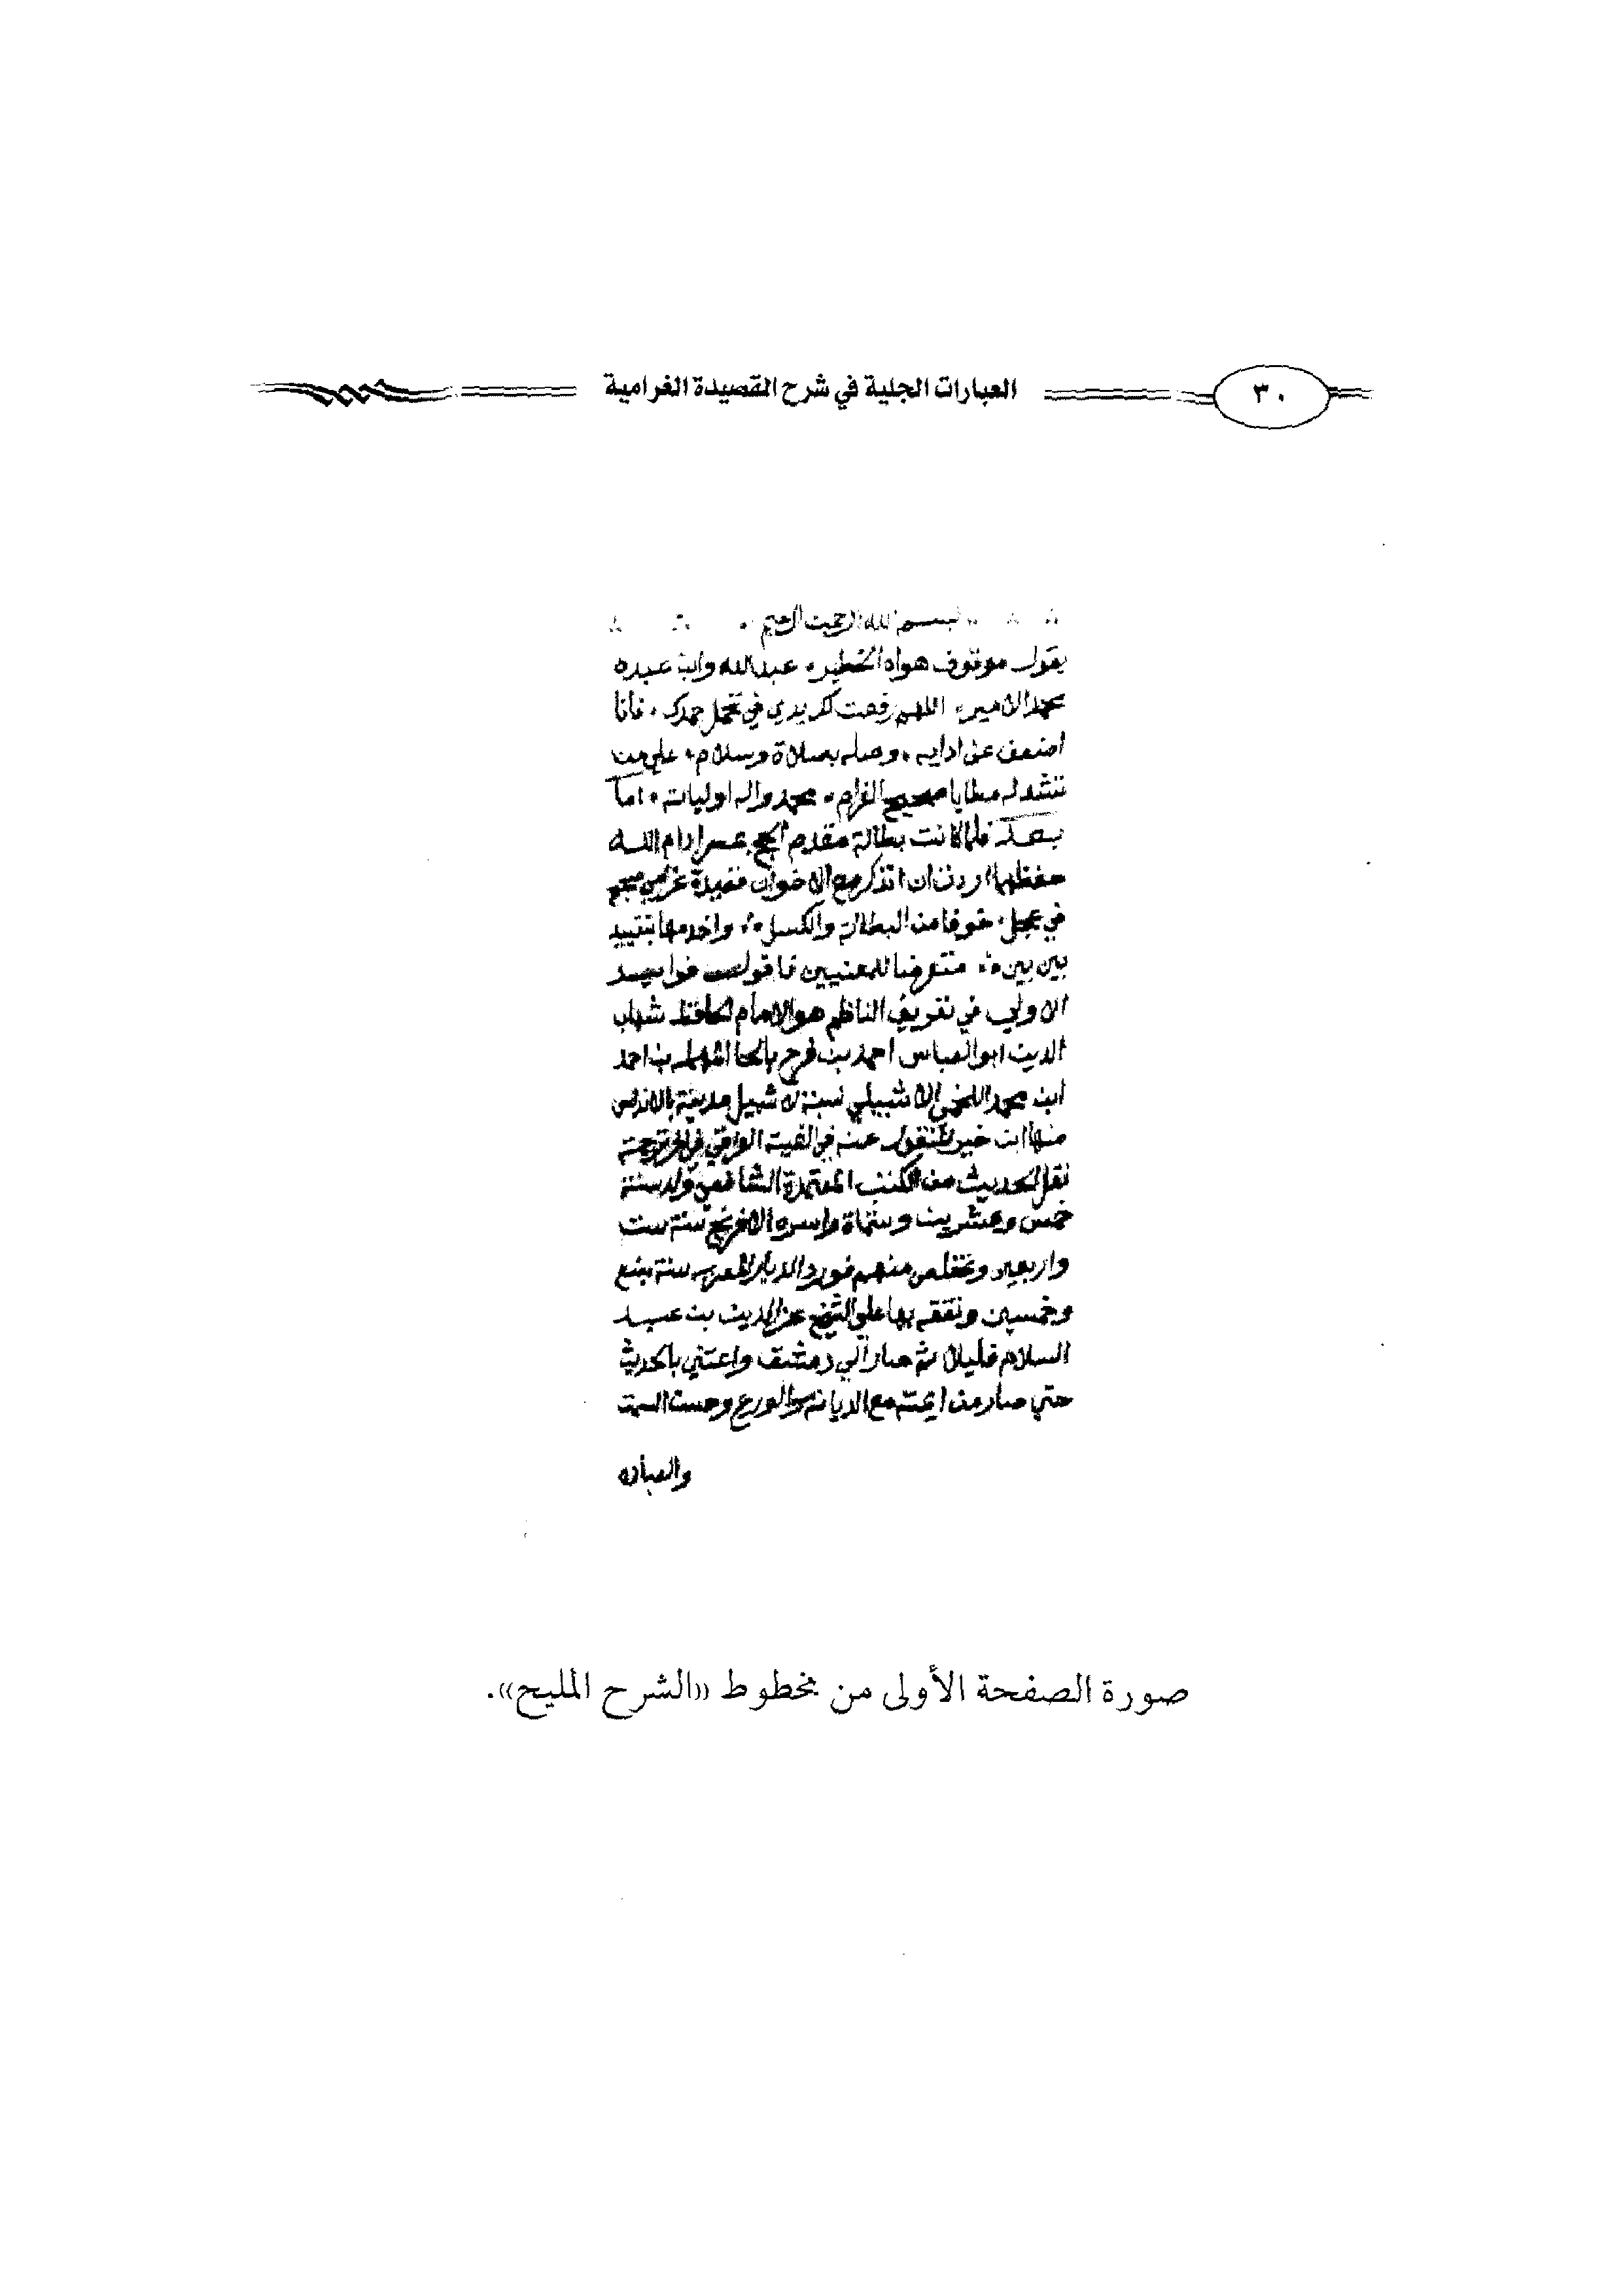 ٣٠
العبارات الجلية في شرح القصيدة الغرامية
بسم الله الرحمن الرحيم
يقول موثوق هواه الخطير عبد الله وابن عبده
محمد الامير اللهم رفعت لك يدي في تحمل حمدك فانا
اضعف عن ادايه وصله بصلاة وسلام على من
تشد له مطايا صحيح الغرام محمد واله اوليائه اما
بعد فلما كانت بطالة مقدم الحج بمصر ادام الله
حفظها اردت ان اتذكر مع الاخوان قصيدة غرامي صحيح
في عجل خوفا من البطالة والكسل واخدمها بتقييد
بين بين متعرضا للمعنيين فاقول فوايد
الاولي في تعريف الناظم هو الامام الحافظ شهاب
الدين ابو العباس احمد بن فرح بالحا المهملة بن احمد
ابن محمد اللخمي الاشبيلي نسبة لاشبيل مدينة بالاندلس
منها ابن خير المنقول عنه في الفية العراقي في اخر ترجمة
نقل الحديث من الكتب المعتمدة الشافعي ولد سنة
خمس وعشرين وستماة واسره الافرنج سنة ست
واربعين وتخلص منهم فورد الديار المصريه سنة بضع
وخمسين وتفقه بها على الشيخ عز الدين بن عبد
السلام قليلا ثم صار الي دمشق واعتني بالحديث
حتي صار من ايمته مع الديانه والورع وحسن السمت
والصيانه
صورة الصفحة الأولى من مخطوط «الشرح المليح».